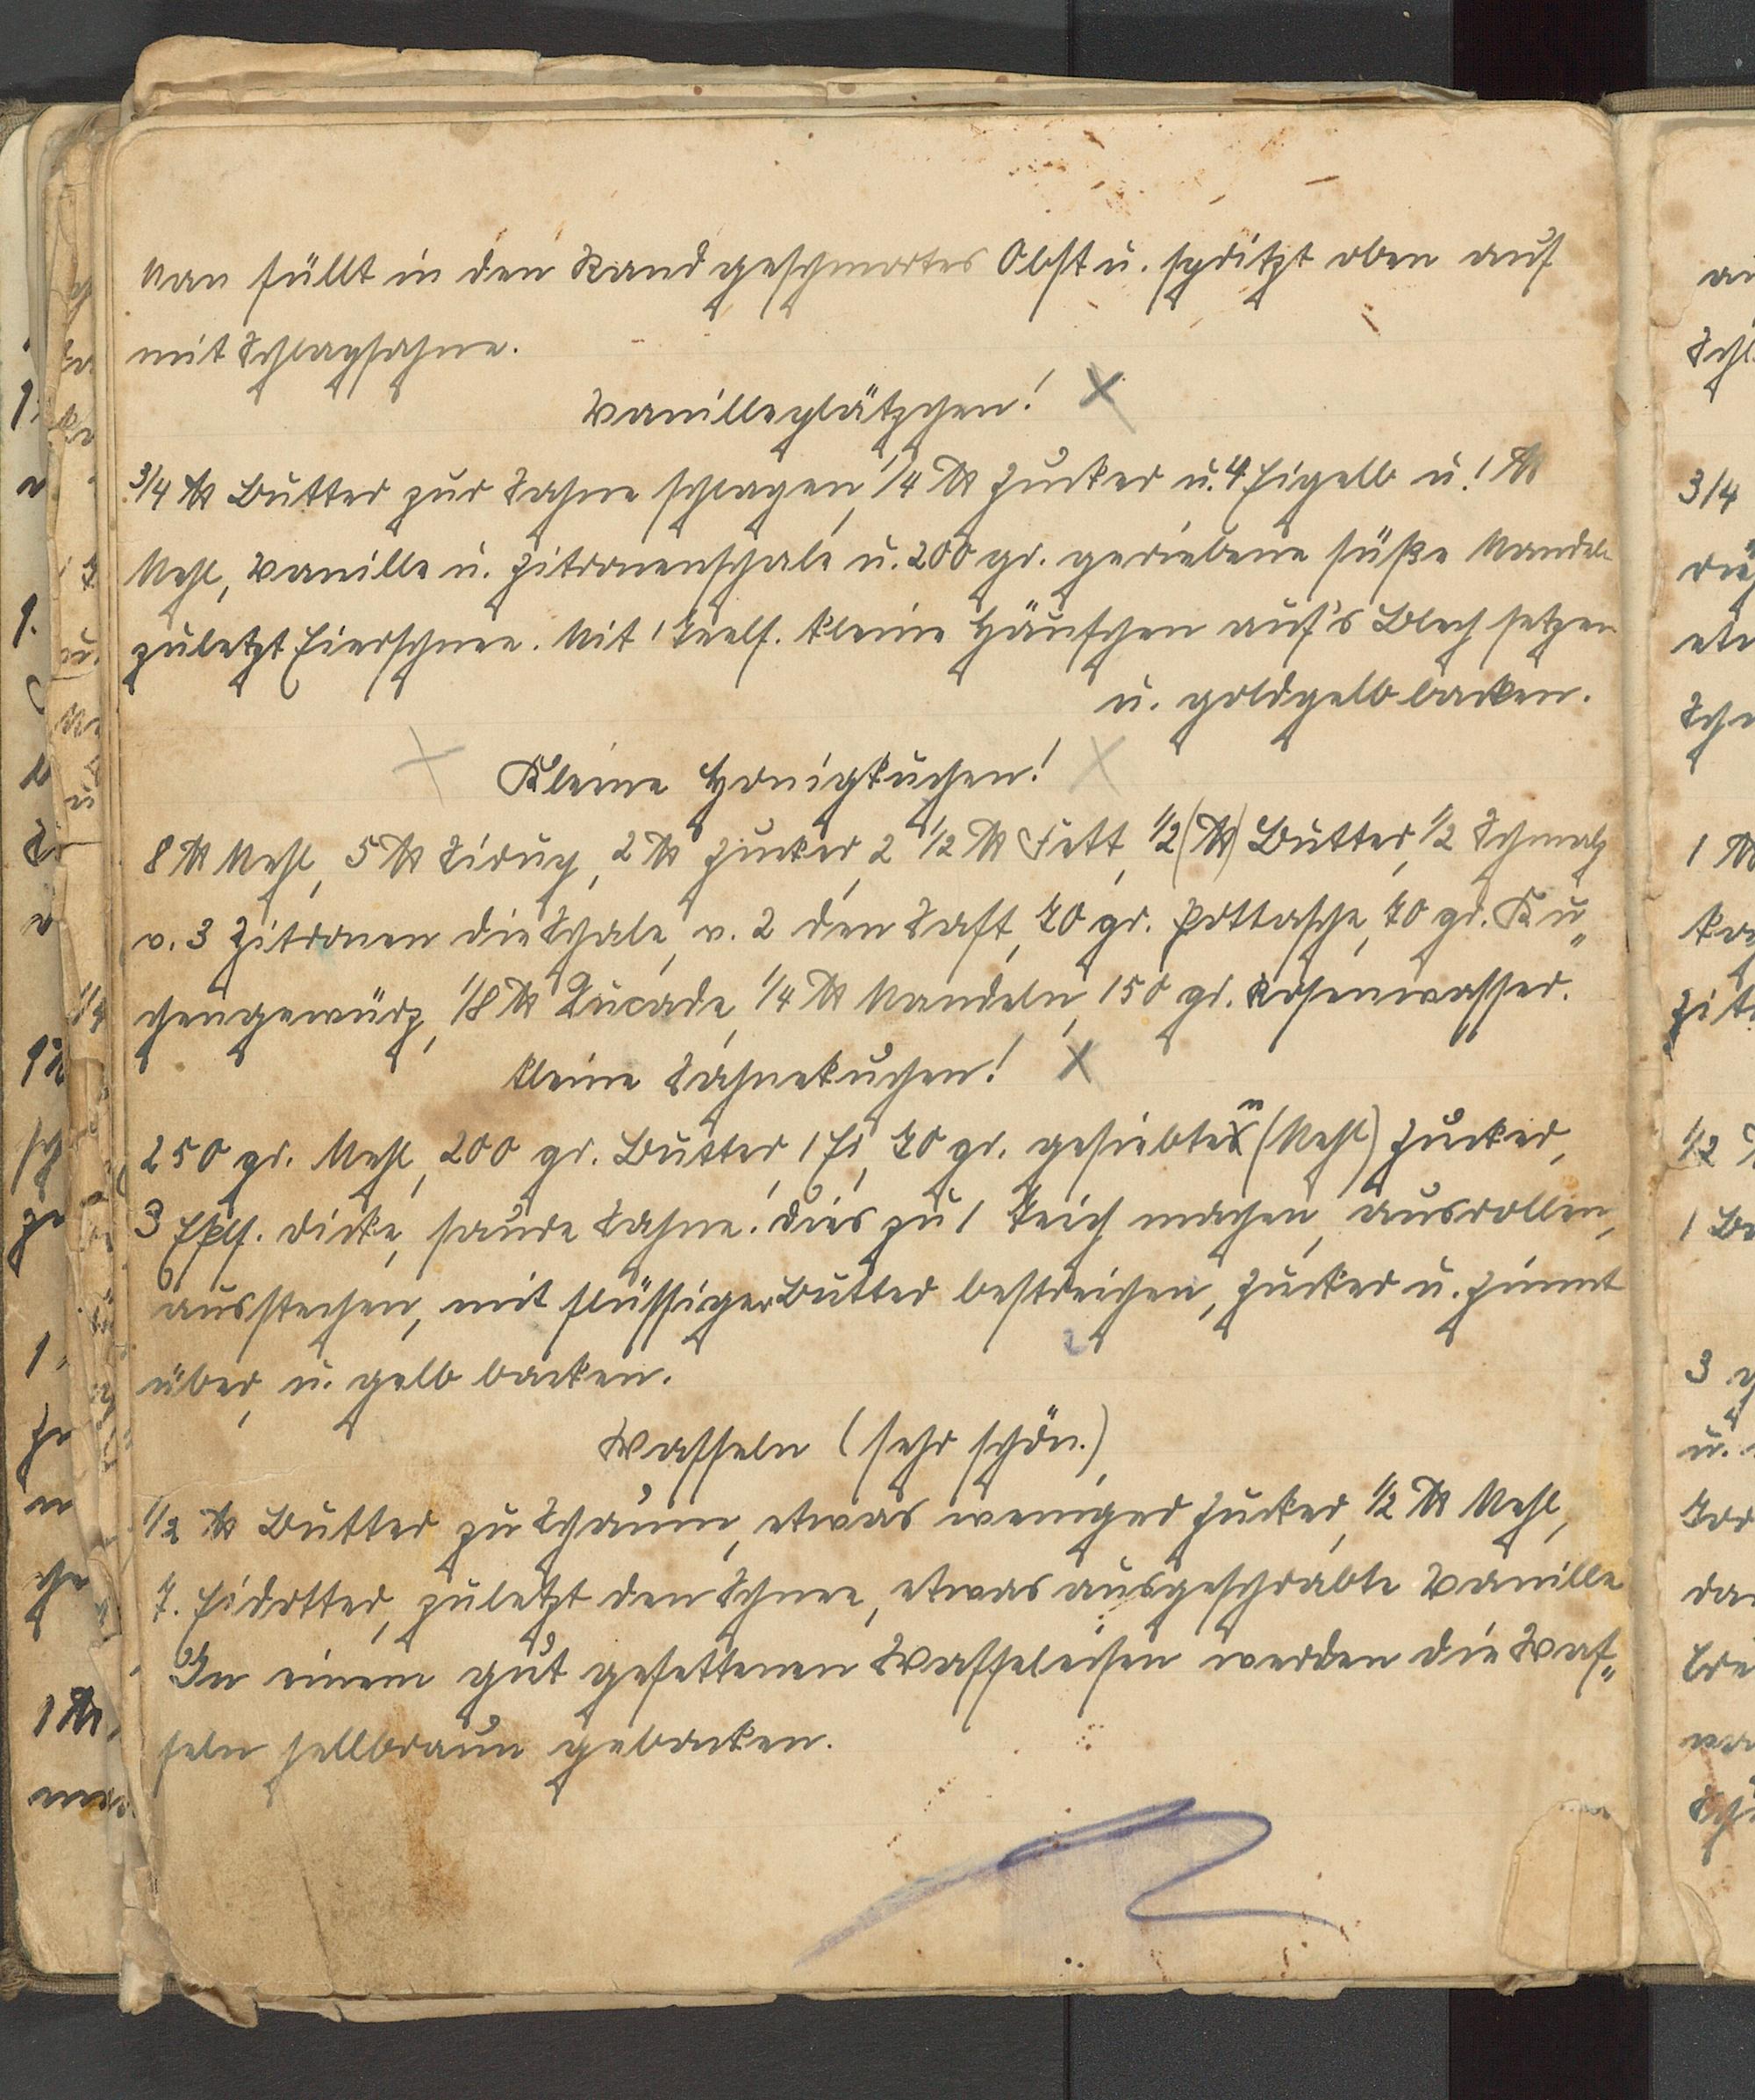 Man füllt in den Rand geschmortes Obst u. spritzt oben auf
mit Schlagsahne.
Vanilleplätzchen! X
3/4 ℔ Butter zur Sahne schlagen, 1/4 ℔ Zucker u. 4 Eigelb u. 1 ℔
Mehl, Vanille u. Zitronenschale u. 200 gr. geriebene süße Mandeln
zuletzt Eierschnee. Mit 1 Teelf. kleine Häufchen auf's Blech setzen
u. goldgelb backen.
X Kleine Honigkuchen! X
8 ℔ Mehl, 5 ℔ Sirup, 2 ℔ Zucker, 2 1/2 ℔ Fett, 1/2 (℔) Butter, 1/2 Schmalz
v. 3 Zitronen die Schale, v. 2 den Saft, 70 gr. Pottasche, 70 gr. Ku„
chengewürz, 1/8 ℔ Sucade, 1/4 ℔ Mandeln, 150 gr. Rosenwasser.
Kleine Sahnekuchen! X
250 gr. Mehl, 200 gr. Butter, 1 Ei, 70 gr. gesiebten (Mehl) Zucker,
3 Eßlf. dicke, saure Sahne. Dies zu 1 Teich machen, ausrollen,
ausstechen, mit flüssiger Butter bestreichen, Zucker u. Zimmt
über, u. gelb backen.
Waffeln (sehr schön.)
1/2 ℔ Butter zu Schaum, etwas weniger Zucker, 1/2 ℔ Mehl,
7. Eidotter, zuletzt den Schnee, etwas ausgeschrabte Vanille
In einem gut gefettenen Waffeleisen werden die Waf„
feln hellbraun gebacken.